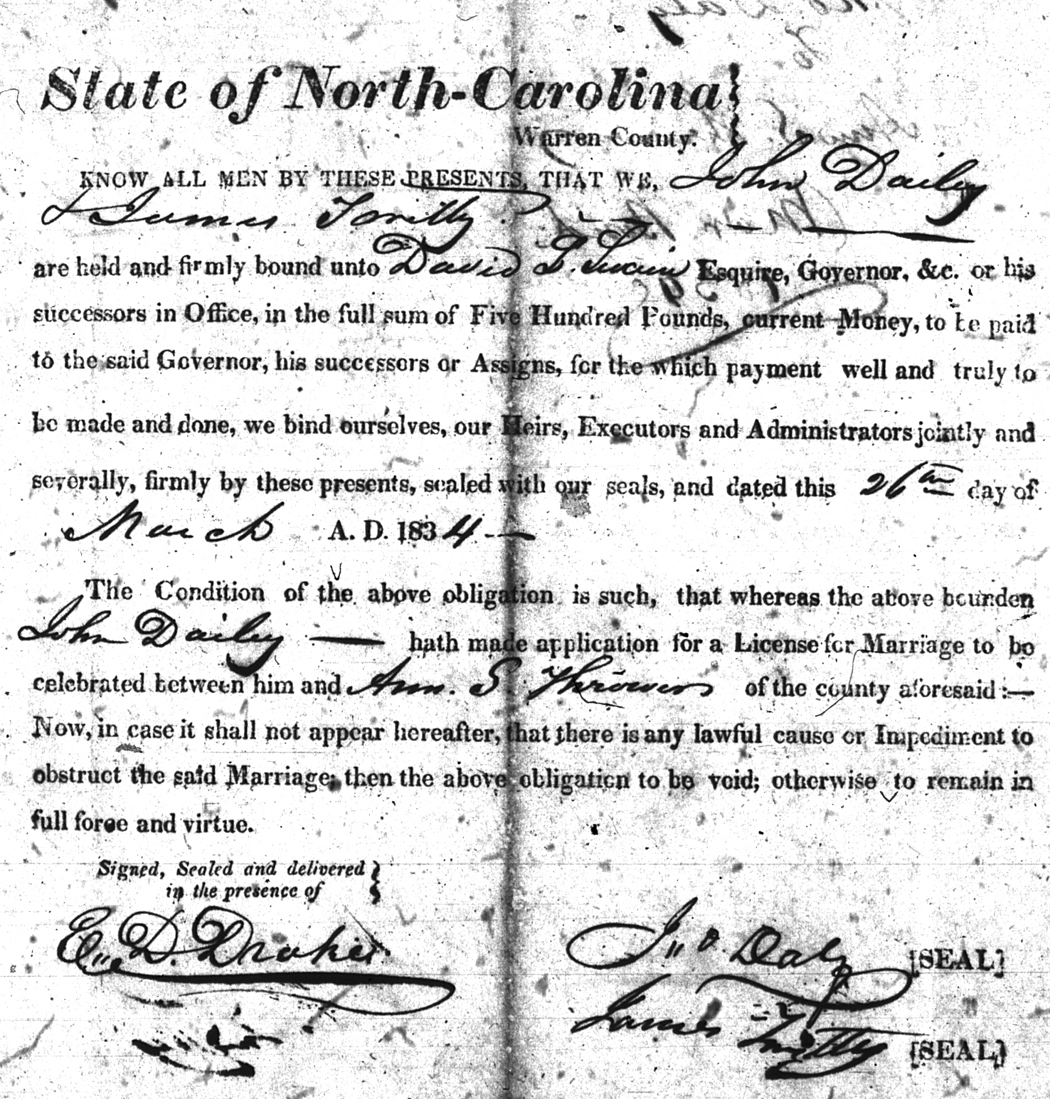 State of North-Carolina
Warren County.
KNOW ALL MEN BY THESE PRESENTS, THAT WE, John Dailey
& James
are held and firmly bound unto David L. Swain Esquire, Governor, &c. or his
successors in Office, in the full sum of Five Hundred Pounds, current Money, to be paid
to the said Governor, his successors or Assigns, for the which payment well and truly to
be made and done, we bind ourselves, our Heirs, Executors and Administrators jointly and
severally, firmly by these presents, sealed with our seals, and dated this 26th day of
March A. D. 1834
The Condition of the above obligation is such, that whereas the above bounden
John Dailey — hath made application for a License for Marriage to be
celebrated between him and Ann. S Throwers of the county aforesaid :—
Now, in case it shall not appear hereafter, that there is any lawful cause or Impediment to
obstruct the said Marriage, then the above obligation to be void; otherwise to remain in
full force and virtue.
Signed, Sealed and delivered
in the presence of
D. Drake
Jno Daly [SEAL]
James [SEAL]